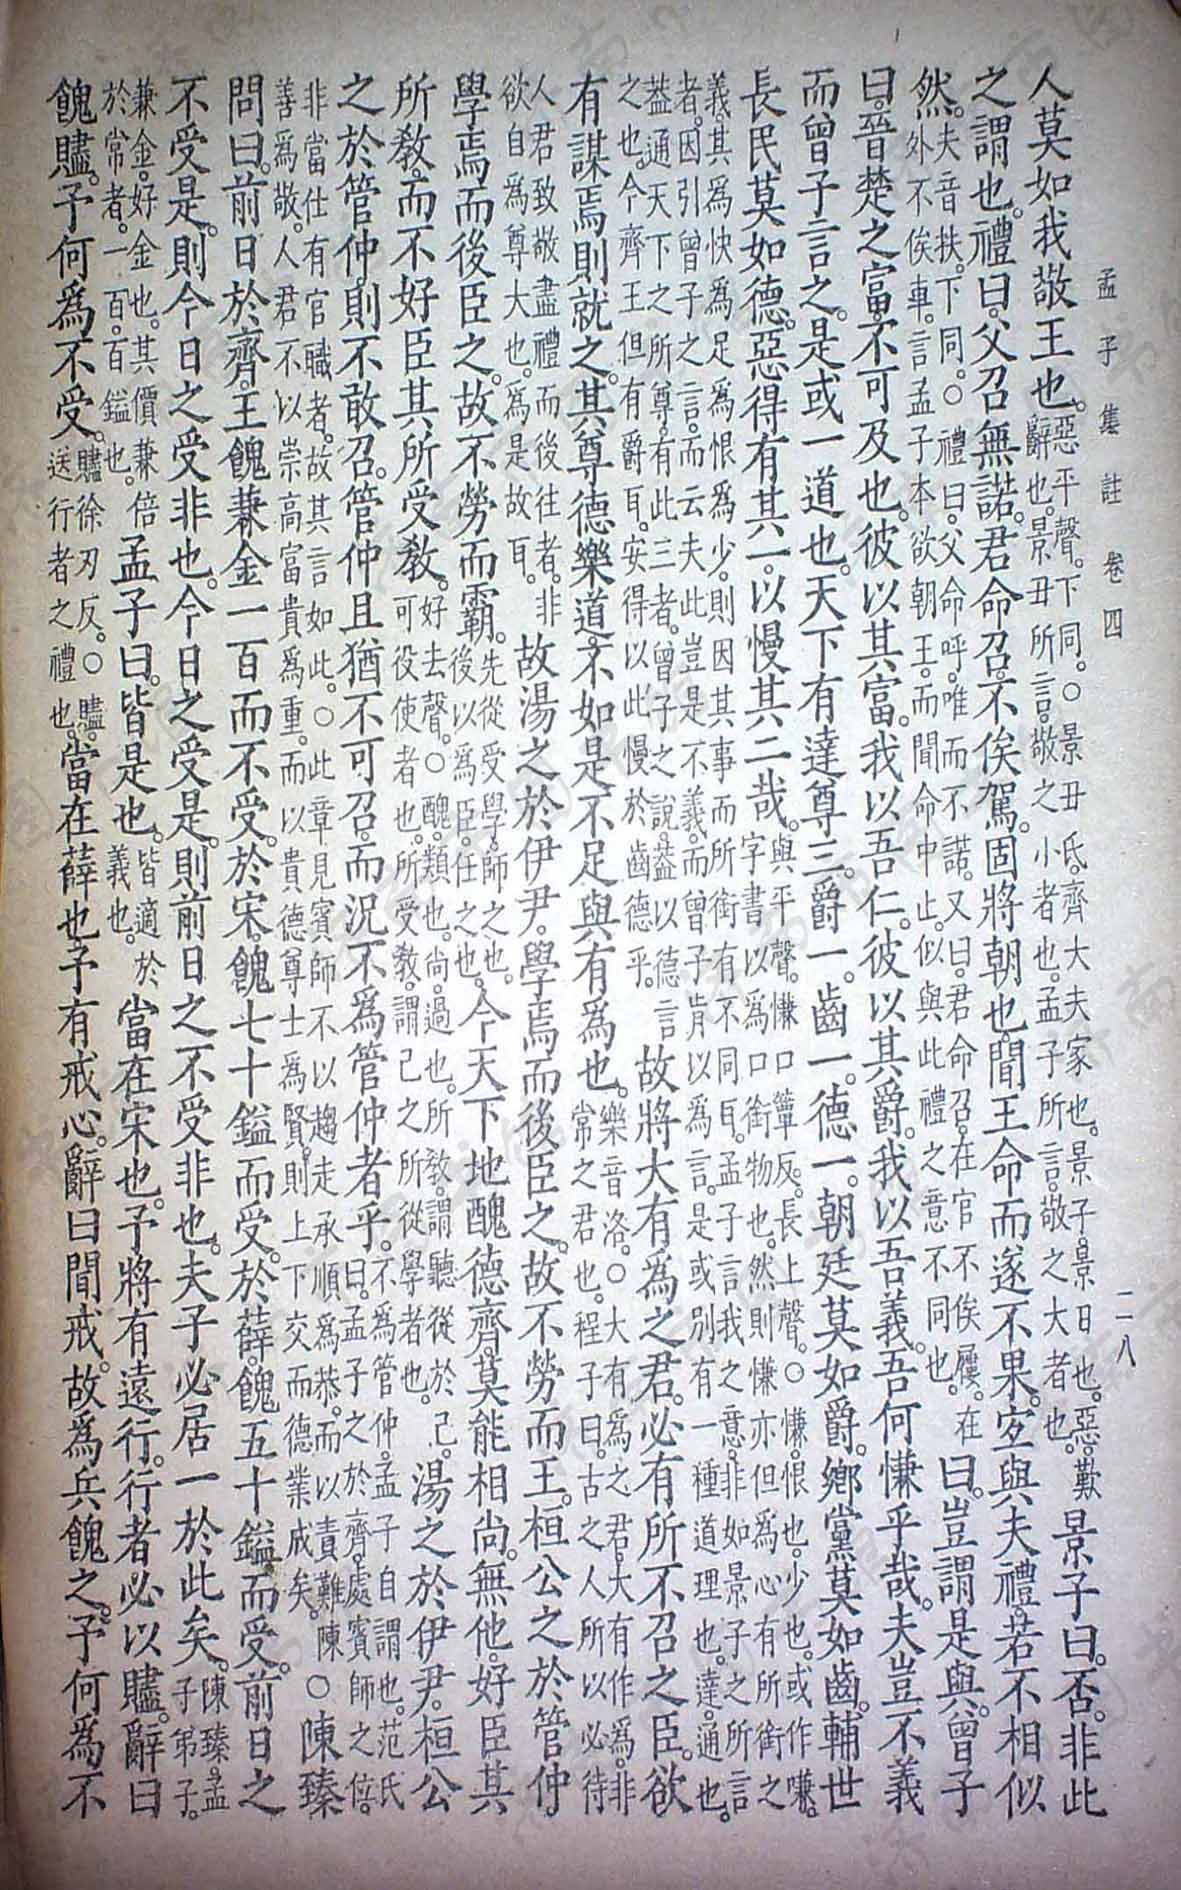 孟子集註 卷四 二八
人莫如我敬王也。惡平聲。下同。○景丑氏。齊大夫家也。景子。景日也。惡。歎辭也。景丑所言。敬之小者也。孟子所言。敬之大者也。景子曰。否。非此
之謂也。禮曰。父召無諾。君命召。不俟駕。固將朝也。聞王命而遂不果。宜與夫禮。若不相似
然。夫音扶。下同。○禮曰。父命呼。唯而不諾。又曰。君命召。在官不俟屨。在外不俟車。言孟子本欲朝王。而聞命中止。似與此禮之意不同也。曰。豈謂是與。曾子
曰。晉楚之富。不可及也。彼以其富。我以吾仁。彼以其爵。我以吾義。吾何慊乎哉。夫豈不義
而曾子言之。是或一道也。天下有達尊三。爵一。齒一。德一。朝廷莫如爵。鄉黨莫如齒。輔世
長民莫如德。惡得有其一。以慢其二哉。與平聲。慊口簟反。長上聲。○慊。恨也。少也。或作嗛。字書以為口銜物也。然則慊亦但為心有所銜之
義。其為快為足為恨為少。則因其事而所銜有不同耳。孟子言我之意。非如景子之所言者。因引曾子之言。而云夫此豈是不義。而曾子肯以為言。是或別有一種道理也。達。通也。
蓋通天下之所尊。有此三者。曾子之說。蓋以德言之也。今齊王但有爵耳。安得以此慢於齒德乎。故將大有爲之君。必有所不召之臣。欲
有謀焉則就之。其尊德樂道。不如是不足與有爲也。樂音洛。○大有為之君。大有作為。非常之君也。程子曰。古之人所以必待
人君致敬盡禮而後往者。非欲自為尊大也。為是故耳。故湯之於伊尹。學焉而後臣之。故不勞而王。桓公之於管仲。
學焉而後臣之。故不勞而霸。先從受學。師之也。後以為臣。任之也。今天下地醜德齊。莫能相尚。無他。好臣其
所教。而不好臣其所受教。好去聲。○醜。類也。尚。過也。所教。謂聽從於己。可役使者也。所受教。謂己之所從學者也。湯之於伊尹。桓公
之於管仲。則不敢召。管仲且猶不可召。而況不爲管仲者乎。不為管仲。孟子自謂也。范氏曰。孟子之於齊。處賓師之位。
非當仕有官職者。故其言如此。○此章見賓師不以趨走承順為恭。而以責難陳善為敬。人君不以崇高富貴為重。而以貴德尊士為賢。則上下交而德業成矣。○陳臻
問曰。前日於齊。王餽兼金一百而不受。於宋。餽七十鎰而受。於薛。餽五十鎰而受。前日之
不受是。則今日之受非也。今日之受是。則前日之不受非也。夫子必居一於此矣。陳臻。孟子弟子。
兼金。好金也。其價兼倍於常者。一百。百鎰也。孟子曰。皆是也。皆適於義也。當在宋也。予將有遠行。行者必以贐。辭曰
餽贐。予何爲不受。贐徐刃反。○贐。送行者之禮也。當在薛也。予有戒心。辭曰聞戒。故爲兵餽之。予何爲不